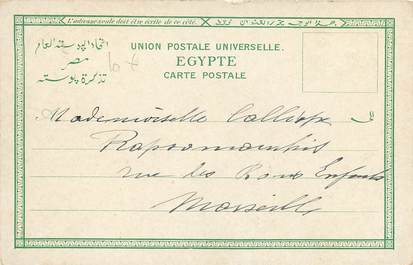 L'adresse seule doit être écrite de ce côté.
UNION POSTALE UNIVERSELLE.
EGYPTE
CARTE POSTALE
اتحاد البوستة العام
مصر
تذكرة بوستة
Mademoiselle Calliope
rue des Bons Enfants
Marseille